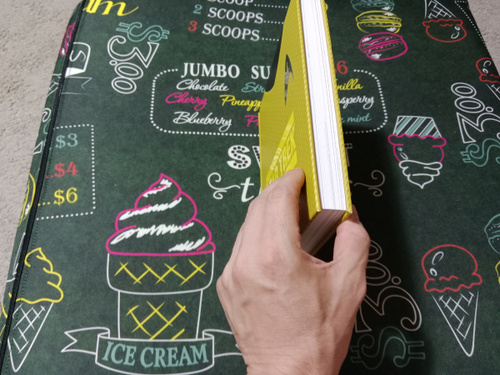 SCOOP
2 SCOOPS
3 SCOOPS
$3.00
JUMBO SU
6
Chocolate
Cherry
Pineapp
Blueberry
mint
$3
$4
$6
$3.00
$3.00
ICE CREAM